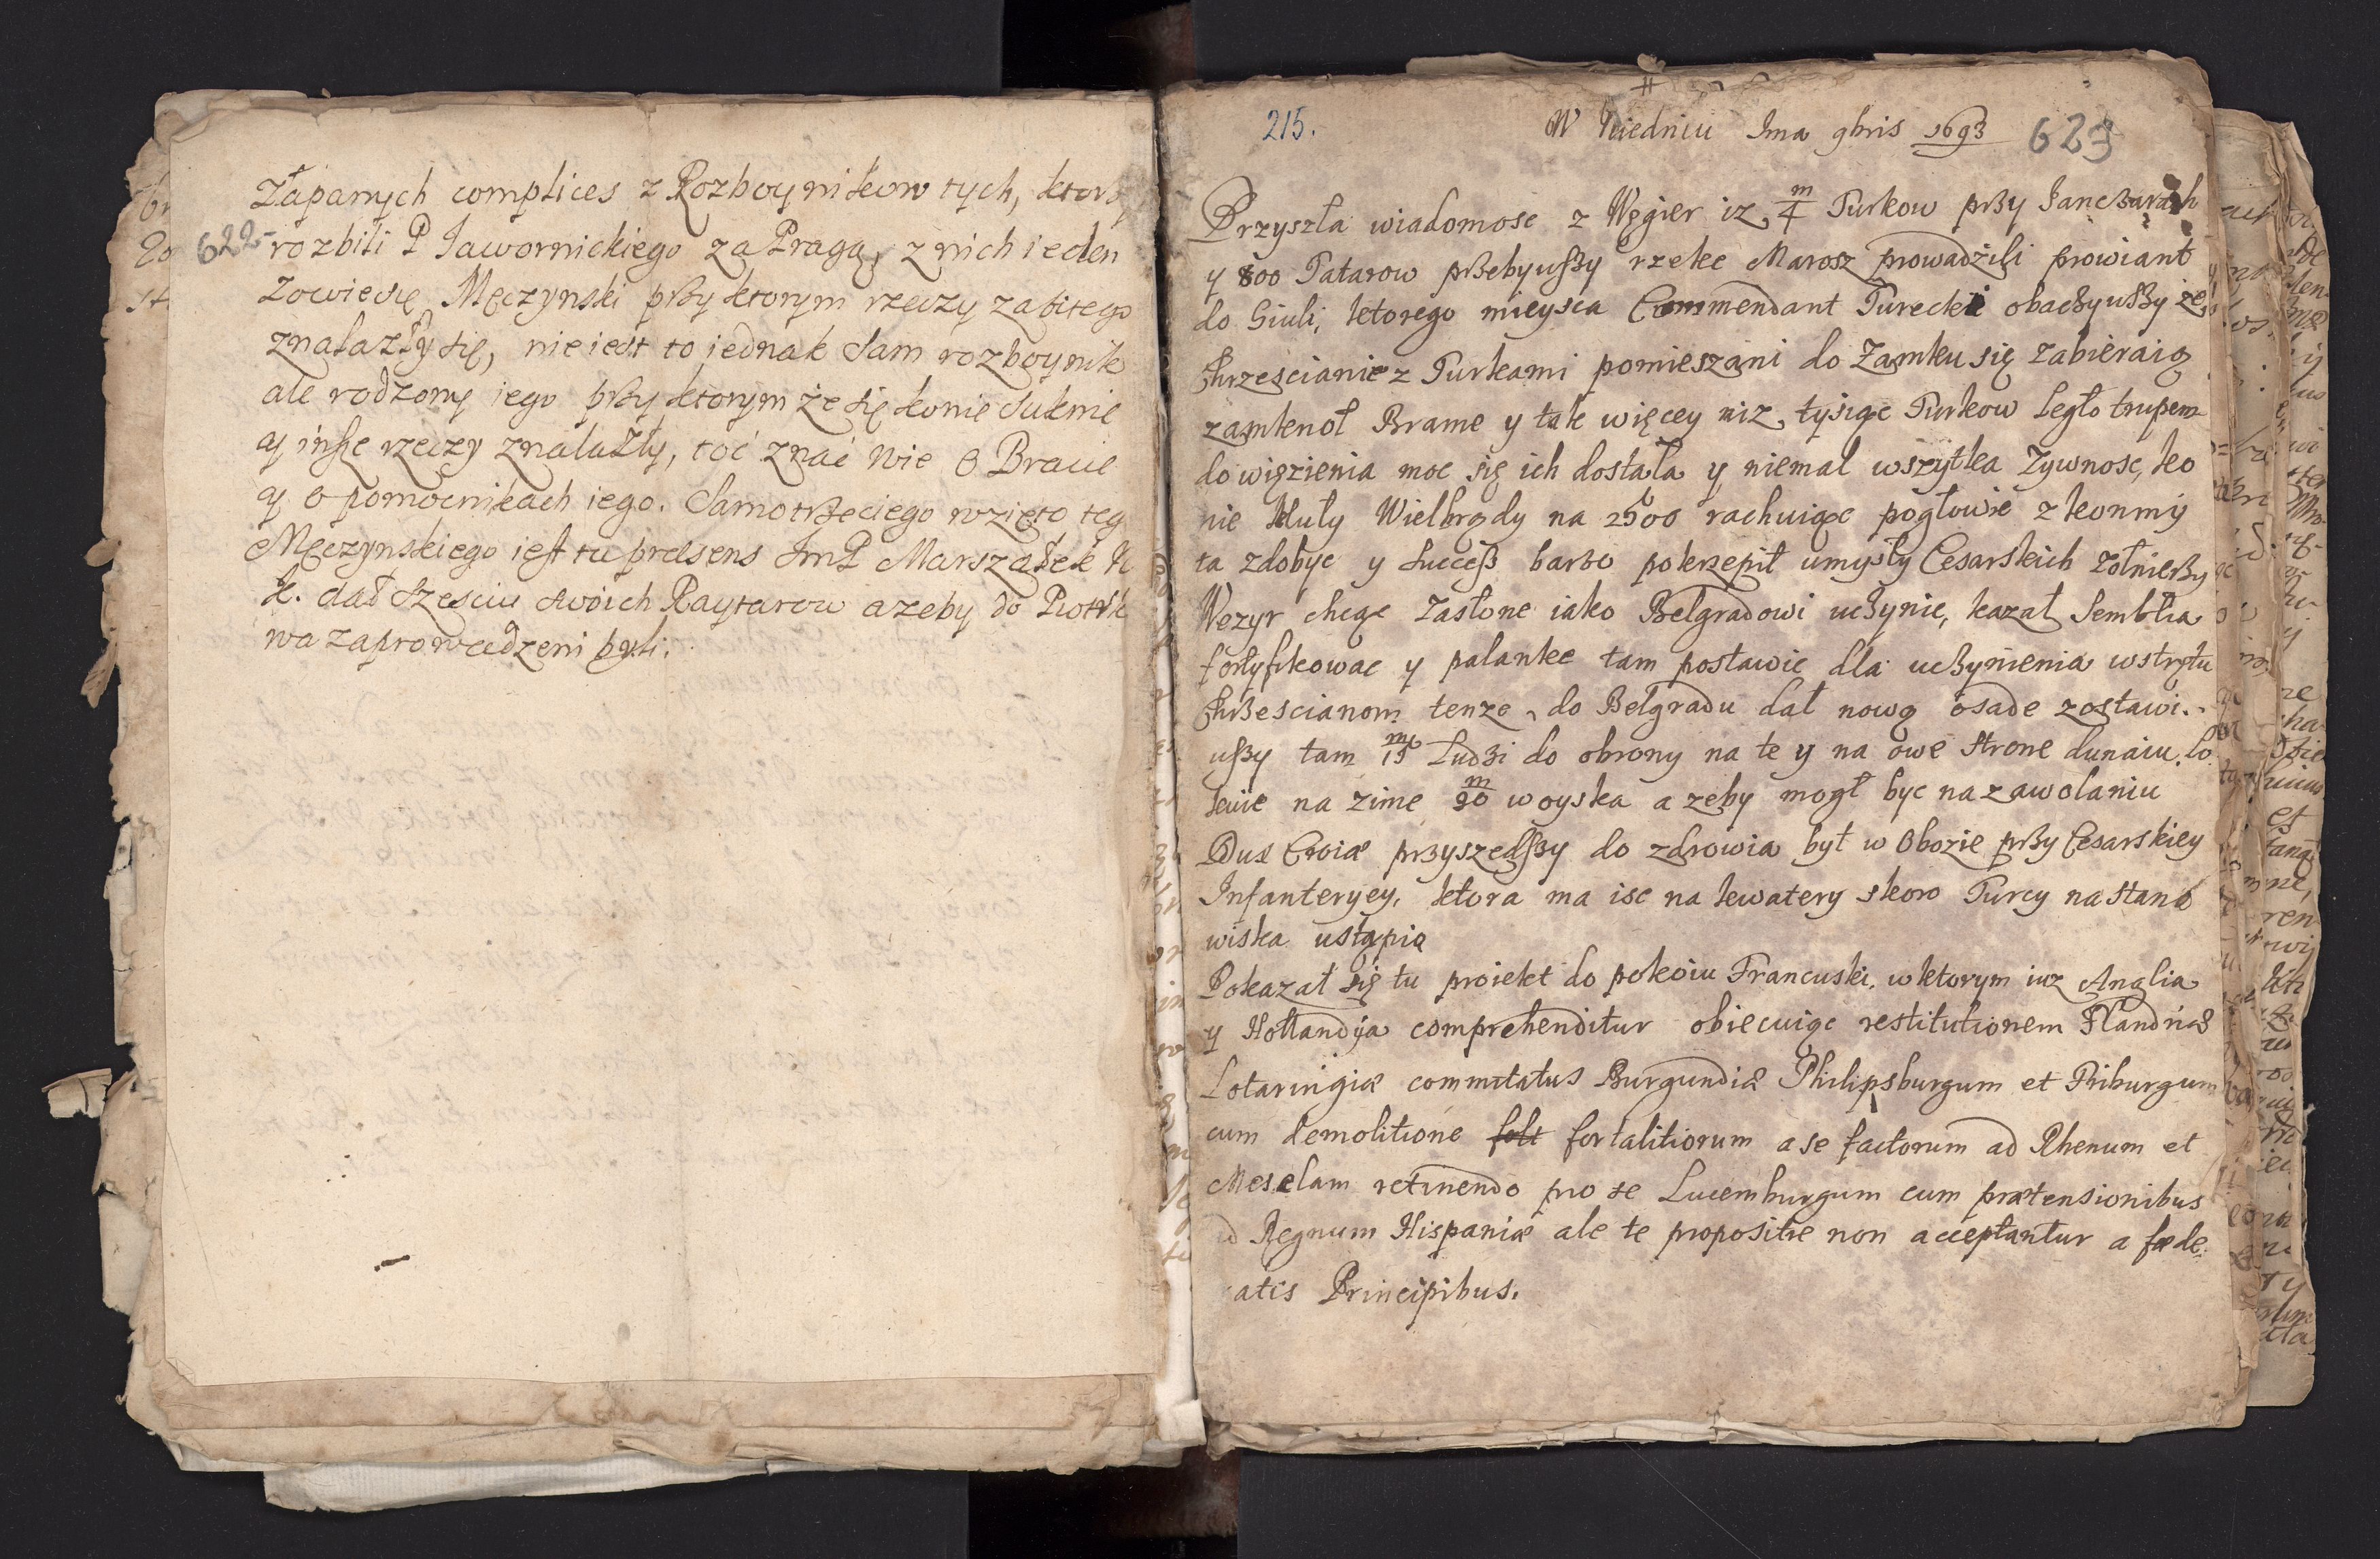 622
Złapanych complices z Rozboynikow tych, ktorzy
rozbili P Jawornickiego za Pragą, z nich ieden
Zowiesię Męczynski przy ktorym rzeczy zabitego
znalazły się, nie iest to iednak sam rozboynik
ale rodzony iego przy ktorym że się konie suknie
y insze rzeczy znalazły, toć znać wie o Bracie
y o pomocnikach iego. Samotrzeciego wzięto teg
Męczynskiego iest tu praesens ImP Marszałek N
K. dał szesciu swoich Raytarow azeby do Piotrk
wa zaprowadzeni byli.
215.
W Wiedniu Ima 9bris 1693
623
Przyszła wiadomosc z Węgier iz 4/m Turkow przy Janczarach
y 800 Tatarow przebywszy rzeke Marosz prowadzili prowiant
do Giuli, ktorego mieysca Commendant Turecki obaczywszy ze
Chrzescianie z Turkami pomieszani do Zamku się zabieraią
zamknoł Brame y tak więcey niz tysiąc Turkow legło trupem
do więzienia moc się ich dostała y niemal wszytka Zywnosc, ko
nie Muły Wielbrądy na 2500 rachuiąc pogłowie z konmy
ta zdobyc y success barzo pokrzepił umysły Cesarskich zołnierzy
Wezyr chcąc Zasłone iako Belgradowi uczynic, kazał Semblia
fortyfikowac y palanke tam postawic dla uczynienia wstrętu
Chrzescianom tenze do Belgradu dał nową osade zostawi-
uszy tam 15/m Ludzi do obrony na te y na owe strone dunaiu. lo
kuie na zime 20/m woyska a zeby mogł byc na zawolaniu
Dux Croiæ przyszedszy do zdrowia był w Obozie przy Cesarskiey
Infanteryey, ktora ma isc na kwatery skoro Turcy na stano
wiska ustąpią
Pokazał się tu proiekt do pokoiu Francuski, w ktorym iuz Anglia
y Hollandya comprehenditur obiecuiąc restitutionem Flandriæ
Lotaringiæ commitatus Burgundiæ Philipsburgum et Friburgum
cum demolitione folt fortalitiorum a se factorum ad Rhenum et
Moselam retinendo pro se Lucemburgum cum prætensionibus
ad Regnum Hispaniæ ale te propositie non acceptantur a fæde
ratis Principibus.